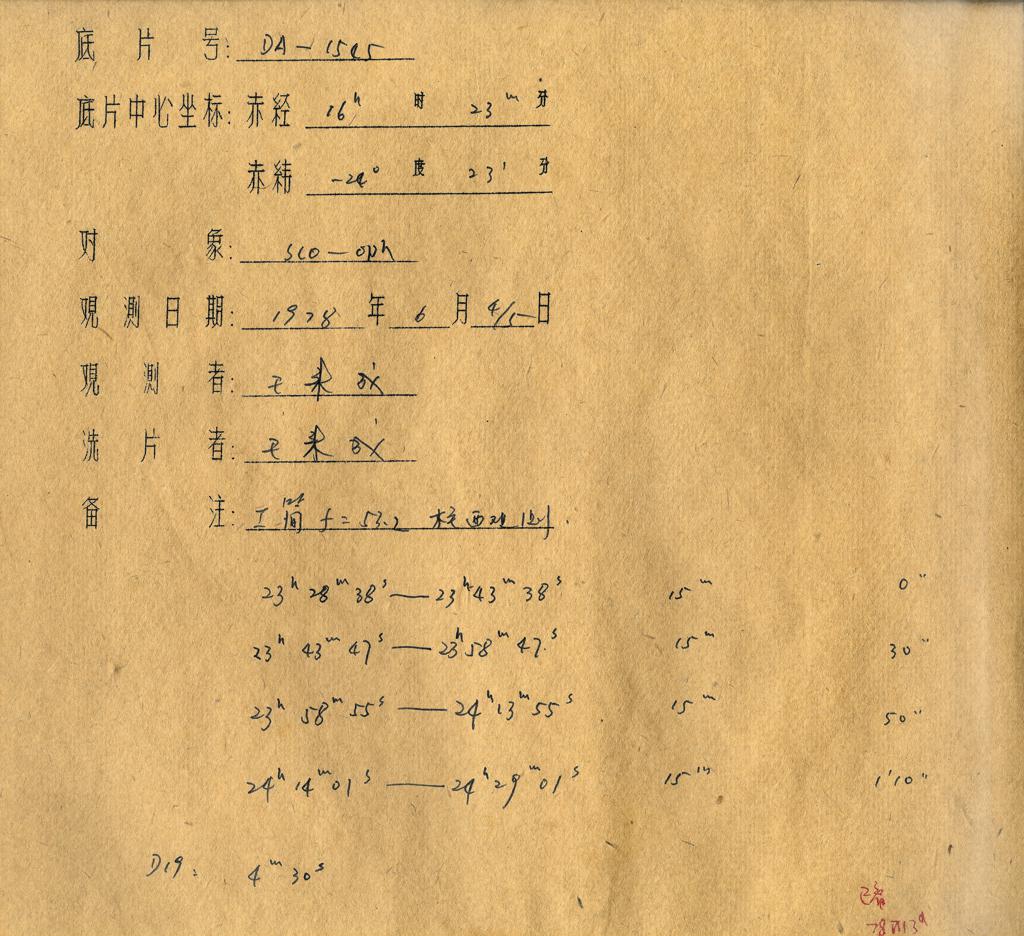 底片号: DA-1545
底片中心坐标: 赤经 16ʰ 时 23ᵐ 分
赤纬 -24° 度 23' 分
对象: Sco-Oph
观测日期: 1978 年 6 月 4/5 日
观测者: 王来
洗片者: 王来
备注: 工筒 f=53.2
23ʰ 28ᵐ 38ˢ — 23ʰ 43ᵐ 38ˢ 15ᵐ 0"
23ʰ 43ᵐ 47ˢ — 23ʰ 58ᵐ 47ˢ 15ᵐ 30"
23ʰ 58ᵐ 55ˢ — 24ʰ 13ᵐ 55ˢ 15ᵐ 50"
24ʰ 14ᵐ 01ˢ — 24ʰ 29ᵐ 01ˢ 15ᵐ 1'10"
D19: 4ᵐ 30ˢ
已看